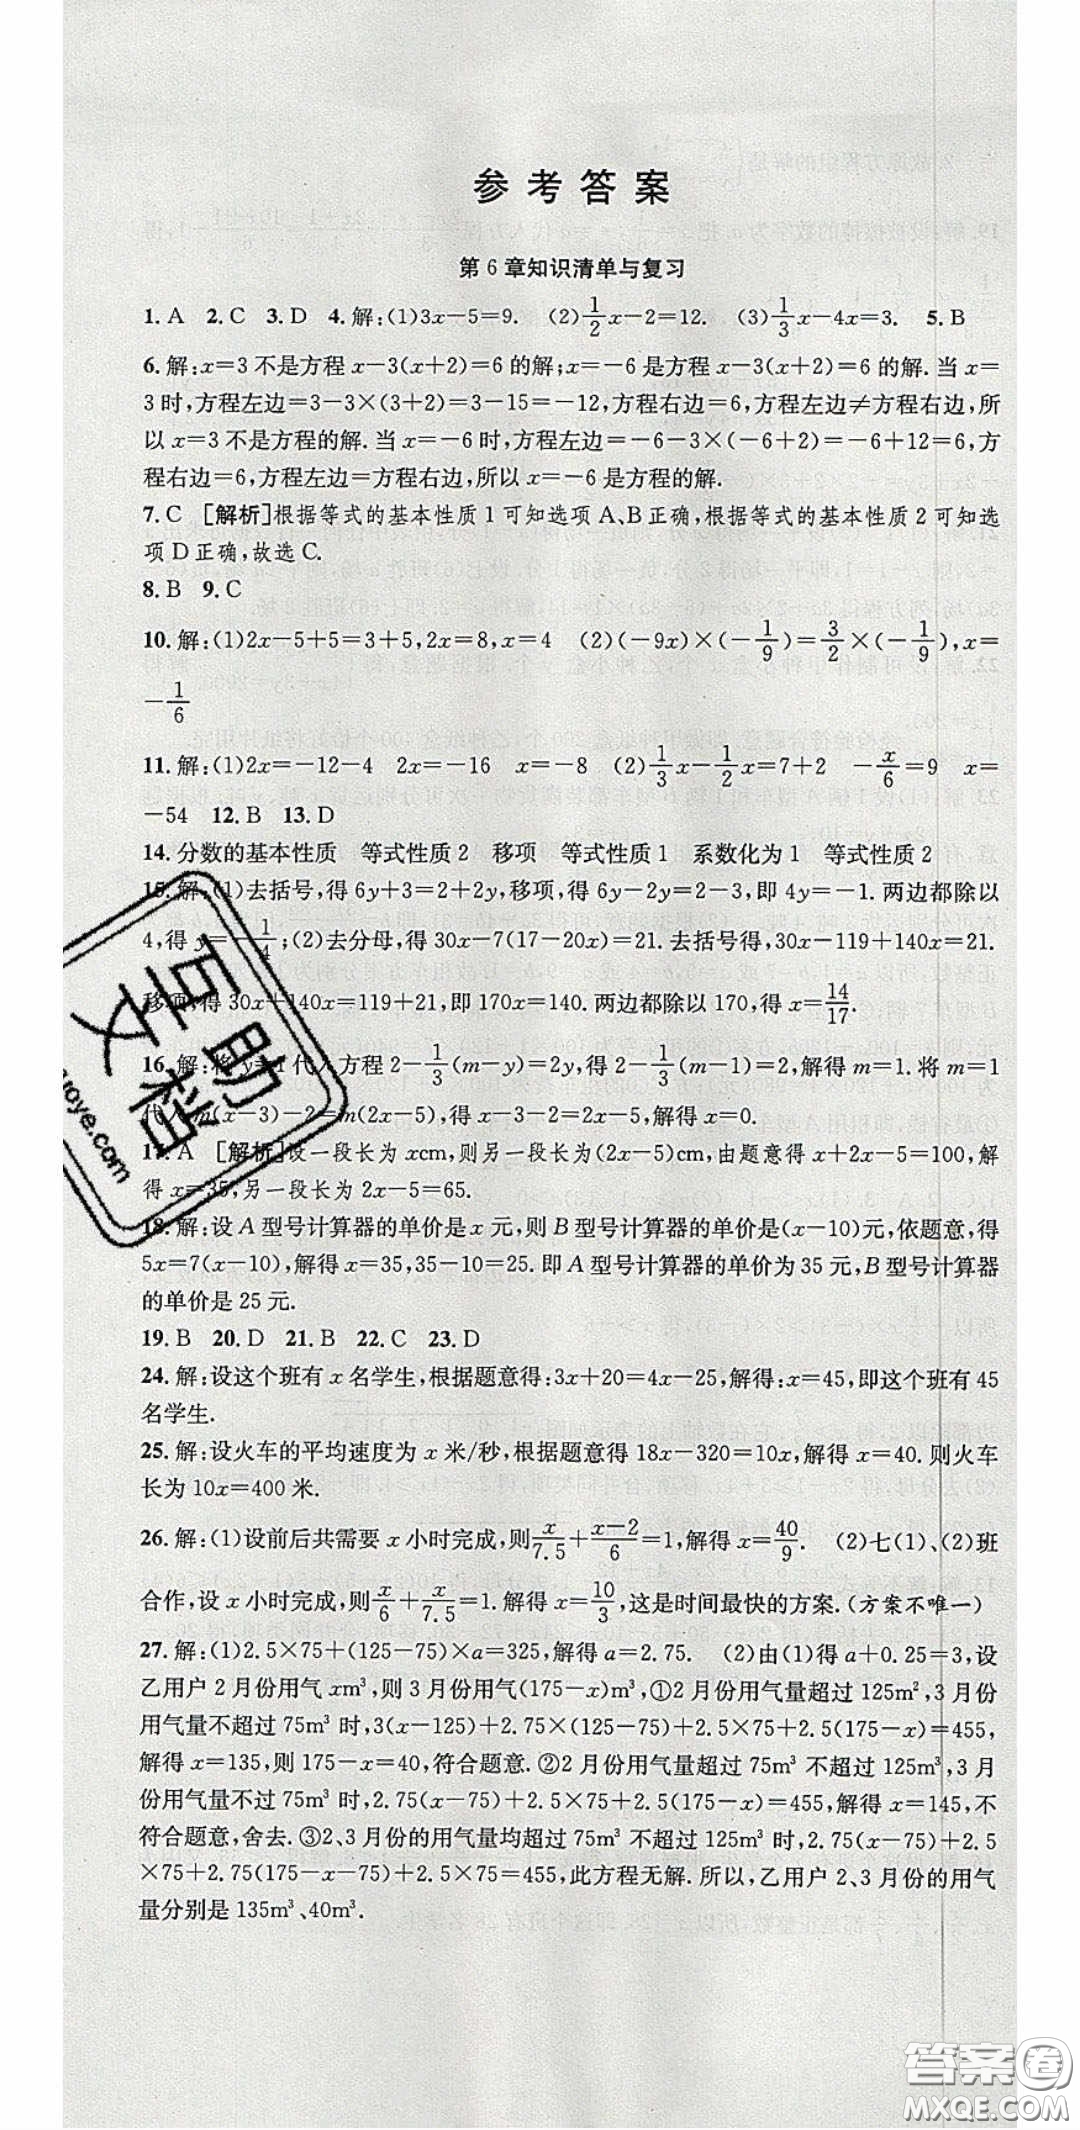 参考答案
第6章知识清单与复习
1. A 2. C 3. D 4. 解:(1)3x-5=9. (2)1/2x-2=12. (3)1/3x-4x=3. 5. B
6. 解:x=3不是方程x-3(x+2)=6的解;x=-6是方程x-3(x+2)=6的解. 当x=
3时,方程左边=3-3×(3+2)=3-15=-12,方程右边=6,方程左边≠方程右边,所
以x=3不是方程的解. 当x=-6时,方程左边=-6-3×(-6+2)=-6+12=6,方
程右边=6,方程左边=方程右边,所以x=-6是方程的解.
7. C [解析]根据等式的基本性质1可知选项A、B正确,根据等式的基本性质2可知选
项D正确,故选C.
8. B 9. C
10. 解:(1)2x-5+5=3+5,2x=8,x=4 (2)(-9x)×(-1/9)=3/2×(-1/9),x=
-1/6
11. 解:(1)2x=-12-4 2x=-16 x=-8 (2)1/3x-1/2x=7+2 -x/6=9 x=
-54 12. B 13. D
14. 分数的基本性质 等式性质2 移项 等式性质1 系数化为1 等式性质2
15. 解:(1)去括号,得6y+3=2+2y,移项,得6y-2y=2-3,即4y=-1. 两边都除以
4,得y=-1/4;(2)去分母,得30x-7(17-20x)=21. 去括号得,30x-119+140x=21.
移项,得30x+140x=119+21,即170x=140. 两边都除以170,得x=14/17.
16. 解:将y=1代入方程2-1/3(m-y)=2y,得2-1/3(m-1)=2. 解得m=1. 将m=1
代入m(x-3)-2=m(2x-5),得x-3-2=2x-5,解得x=0.
17. A [解析]设一段长为xcm,则另一段长为(2x-5)cm,由题意得x+2x-5=100,解
得x=35,另一段长为2x-5=65.
18. 解:设A型号计算器的单价是x元,则B型号计算器的单价是(x-10)元,依题意,得
5x=7(x-10),解得x=35,35-10=25. 即A型号计算器的单价为35元,B型号计算器
的单价是25元.
19. B 20. D 21. B 22. C 23. D
24. 解:设这个班有x名学生,根据题意得:3x+20=4x-25,解得:x=45,即这个班有45
名学生.
25. 解:设火车的平均速度为x米/秒,根据题意得18x-320=10x,解得x=40. 则火车
长为10x=400米.
26. 解:(1)设前后共需要x小时完成,则x/7.5+x-2/6=1,解得x=40/9. (2)七(1)、(2)班
合作,设x小时完成,则x/6+x/7.5=1. 解得x=10/3,这是时间最快的方案.(方案不唯一)
27. 解:(1)2.5×75+(125-75)×a=325,解得a=2.75. (2)由(1)得a+0.25=3,设
乙用户2月份用气xm³,则3月份用气(175-x)m³,①2月份用气量超过125m²,3月份
用气量不超过75m³时,3(x-125)+2.75×(125-75)+2.5×75+2.5(175-x)=455,
解得x=135,则175-x=40,符合题意. ②2月份用气量超过75m³不超过125m³,3月
份用气量不过75m³时,2.75(x-75)+2.5×75+2.5×(175-x)=455,解得x=145,不
符合题意,舍去. ③2、3月份的用气量均超过75m³不超过125m³时,2.75(x-75)+2.5
×75+2.75(175-x-75)+2.5×75=455,此方程无解. 所以,乙用户2、3月份的用气
量分别是135m³、40m³.
互助
文档
uoye.com
答案卷
MXQE.COM